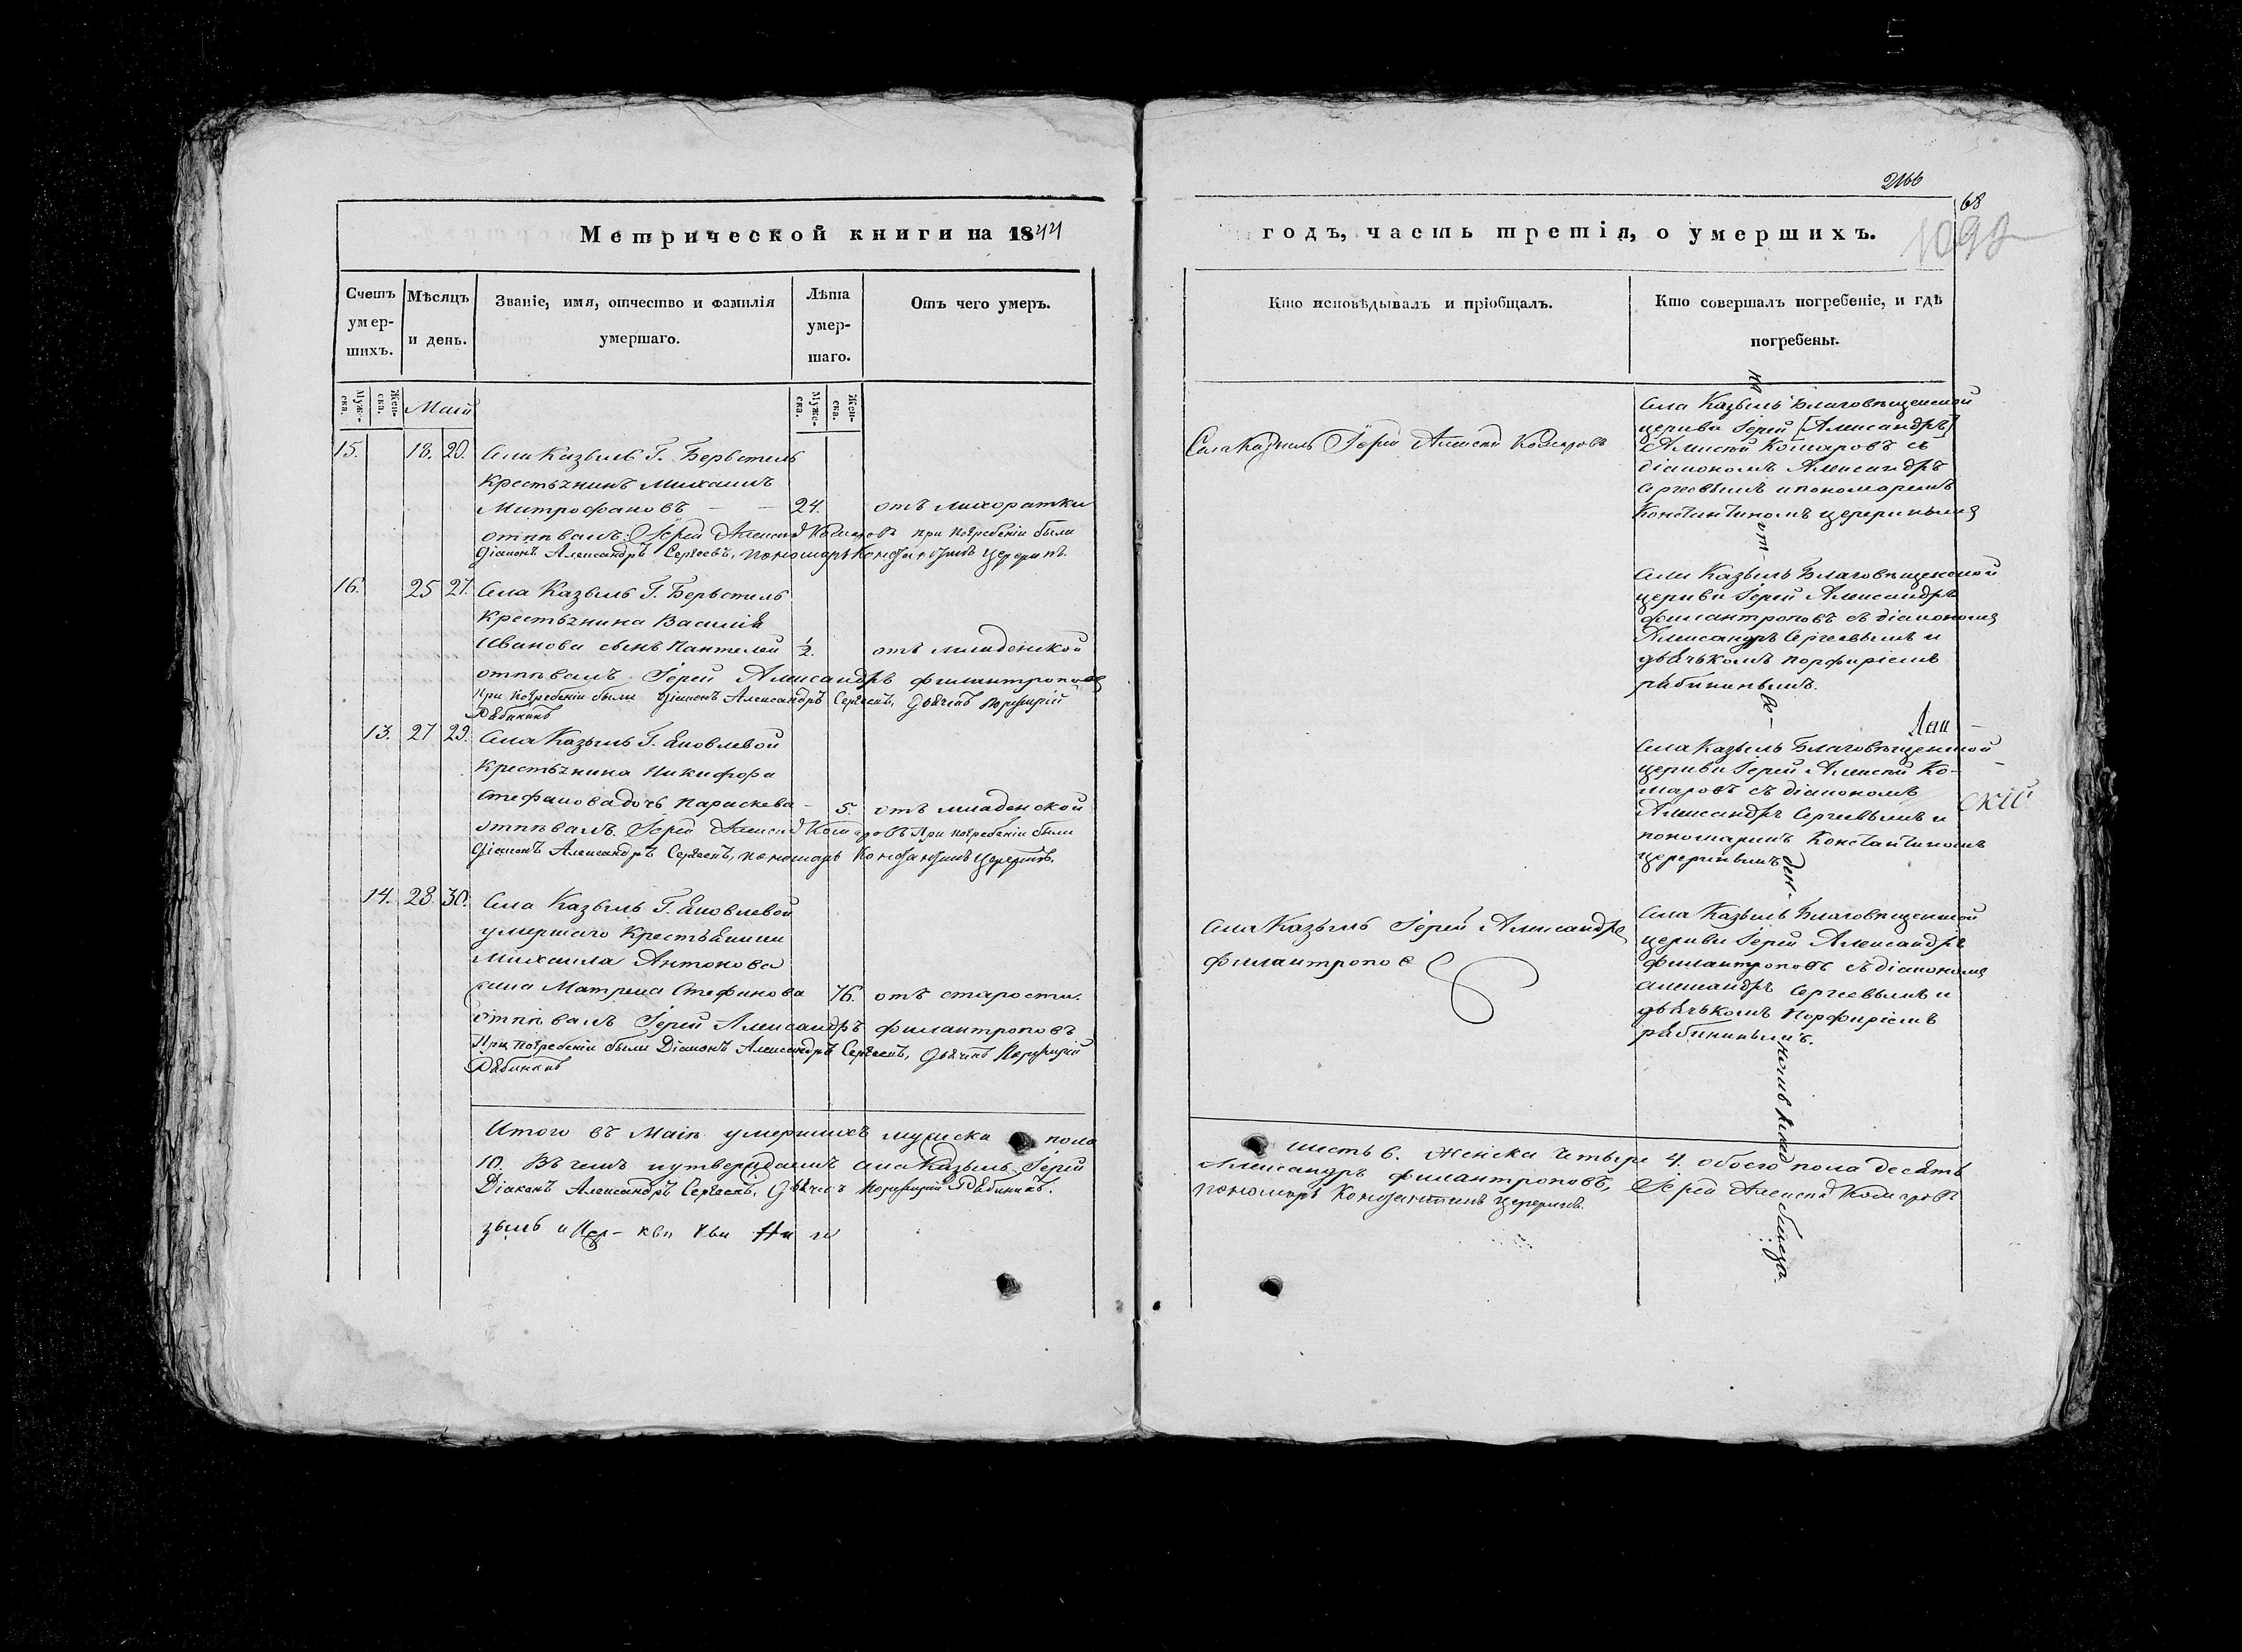 Метрической книги на 1844
Счетъ умер-шихъ.
Мѣсяцъ и день.
Званіе, имя, отчество и фамилія умершаго.
Лѣта умер-шаго.
Отъ чего умеръ.
Муж-ска.
Жен-ска.
Маій
Муже-ска.
Жен-ска.
15. 18. 20. Села Казыль Г.
Крестьянинъ Михаилъ
Митрофановъ — — 24. отъ лихоратки
отпѣвалъ: Іерей Алексій Комаровъ при погребеніи были
Діаконъ Александръ Сергеевъ, пономарь Константинъ
16. 25 27. Села Казыль Г.
Крестьянина Василія
Иванова сынъ Пантелей ½. отъ младенской
отпѣвалъ Іерей Александръ Филантроповъ
При погребеніи были діаконъ Александръ Сергеевъ, дьячекъ Порфирій
Рябининъ
13. 27 29. Села Казыль Г. Яковлевой
Крестьянина Никифора
Стефанова дочь Параскева — 5. отъ младенской
отпѣвалъ. Іерей Алексій Комаровъ При погребеніи были
Діаконъ Александръ Сергеевъ, пономарь Константинъ
14. 28. 30. Села Казыль Г. Яковлевой
умершаго Крестьянина
Михаила Антонова
жена Матрена Стефанова 76. отъ старости.
отпѣвалъ Іерей Александръ Филантроповъ
При погребеніи были Діаконъ Александръ Сергеевъ, дьячекъ Порфирій
Рябининъ
Итого въ Маіѣ умершихъ мужска пола
10. Въ чемъ утверждаемъ села Казыль Іерей
Діаконъ Александръ Сергеевъ, дьячекъ Порфирій Рябининъ.
2166
68
1098
годъ, часть третія, о умершихъ.
Кто исповѣдывалъ и пріобщалъ.
Кто совершалъ погребеніе, и гдѣ погребены.
Села Казыль Іерей Алексій Комаровъ
Села Казыль Благовѣщенской
церкви Іерей [Александръ]
Алексій Комаровъ съ
діакономъ Александръ
Сергеевымъ и пономаремъ
Константиномъ
Села Казыль Благовѣщенской
церкви Іерей Александръ
Филантроповъ съ діакономъ
Александръ Сергеевымъ и
дьячькомъ Порфиріемъ
Рябининымъ.
Села Казыль Благовѣщенской
церкви Іерей Алексій Ко-
маровъ съ діакономъ
Александръ Сергеевымъ и
пономаремъ Константиномъ
скій
Села Казыль Іерей Александръ
Филантроповъ
Села Казыль Благовѣщенской
церкви Іерей Александръ
Филантроповъ съ діакономъ
Александръ Сергеевымъ и
дьячькомъ Порфиріемъ
Рябининымъ.
шесть 6. Женска четыре 4. обоего пола десять
Александръ Филантроповъ, Іерей Алексій Комаровъ
пономарь Константинъ